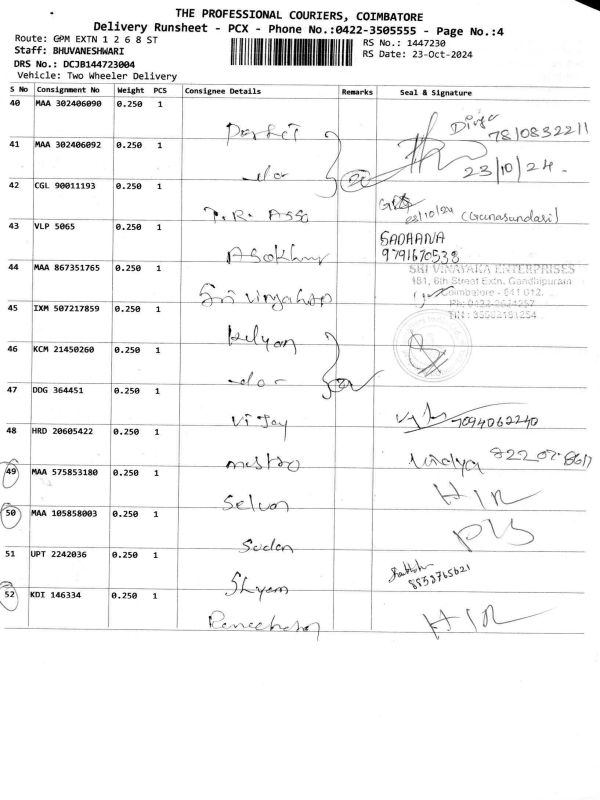 THE PROFESSIONAL COURIERS, COIMBATORE
Delivery Runsheet - PCX - Phone No.:0422-3505555 - Page No.:4
Route: GPM EXTN 1 2 6 8 ST
RS No.: 1447230
Staff: BHUVANESHWARI
RS Date: 23-Oct-2024
DRS No.: DCJB144723004
Vehicle: Two Wheeler Delivery
S No Consignment No Weight PCS Consignee Details Remarks Seal & Signature
40 MAA 302406090 0.250 1
Divya
7810832211
41 MAA 302406092 0.250 1
do
23/10/24.
42 CGL 90011193 0.250 1
T.R. Asso
23/10/24 (Gunasundari)
43 VLP 5065 0.250 1
SADHANA
9791670538
44 MAA 867351765 0.250 1
SRI VINAYAKA ENTERPRISES
181, 6th Street Extn. Gandhipuram
Coimbatore - 641 012.
Sri Vinyahap
45 IXM 507217859 0.250 1
Kelyan
46 KCM 21450260 0.250 1
do
47 DDG 364451 0.250 1
Vijay 7094062240
48 HRD 20605422 0.250 1
49 MAA 575853180 0.250 1
Selvan HIR
50 MAA 105858003 0.250 1
Sudan
51 UPT 2242036 0.250 1
Shyam
52 KDI 146334 0.250 1
HIR